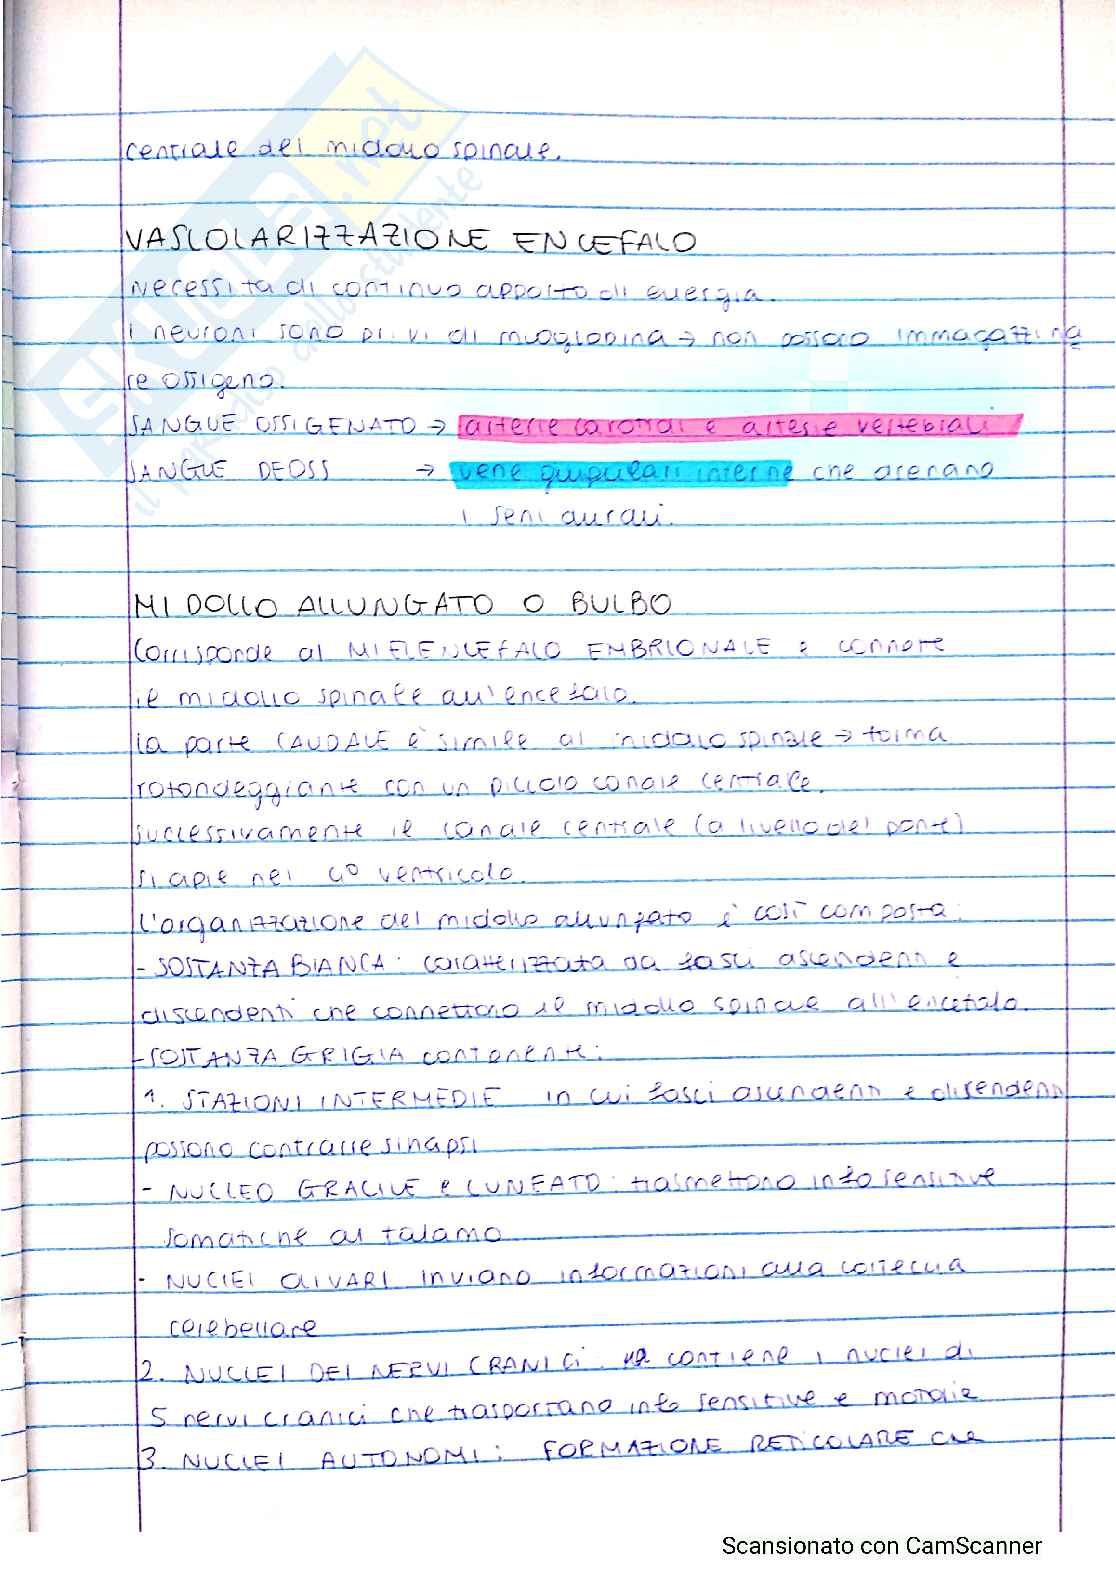 centrale del midollo spinale.
VASCOLARIZZAZIONE ENCEFALO
Necessita di continuo apporto di energia.
I neuroni sono privi di mioglobina → non possono immagazzina
re ossigeno.
SANGUE OSSIGENATO → arterie carotidi e arterie vertebrali
SANGUE DEOSS → vene giugulari interne che drenano
i seni durali.
MIDOLLO ALLUNGATO O BULBO
Corrisponde al MIELENCEFALO EMBRIONALE e connette
il midollo spinale all'encefalo.
La parte CAUDALE è simile al midollo spinale → forma
rotondeggiante con un piccolo canale centrale.
successivamente il canale centrale (a livello del ponte)
si apre nel 4° ventricolo.
L'organizzazione del midollo allungato è così composta:
- SOSTANZA BIANCA: caratterizzata da fasci ascendenti e
discendenti che connettono il midollo spinale all'encefalo.
- SOSTANZA GRIGIA contenente:
1. STAZIONI INTERMEDIE in cui fasci ascendenti e discendenti
possono contrarre sinapsi
- NUCLEO GRACILE e CUNEATO: trasmettono info sensitive
somatiche al talamo
- NUCLEI OLIVARI inviano informazioni alla corteccia
cerebellare
2. NUCLEI DEI NERVI CRANICI: contiene i nuclei di
5 nervi cranici che trasportano info sensitive e motorie
3. NUCLEI AUTONOMI: FORMAZIONE RETICOLARE che
SKUOLA.net
il paradiso dello studente
Scansionato con CamScanner